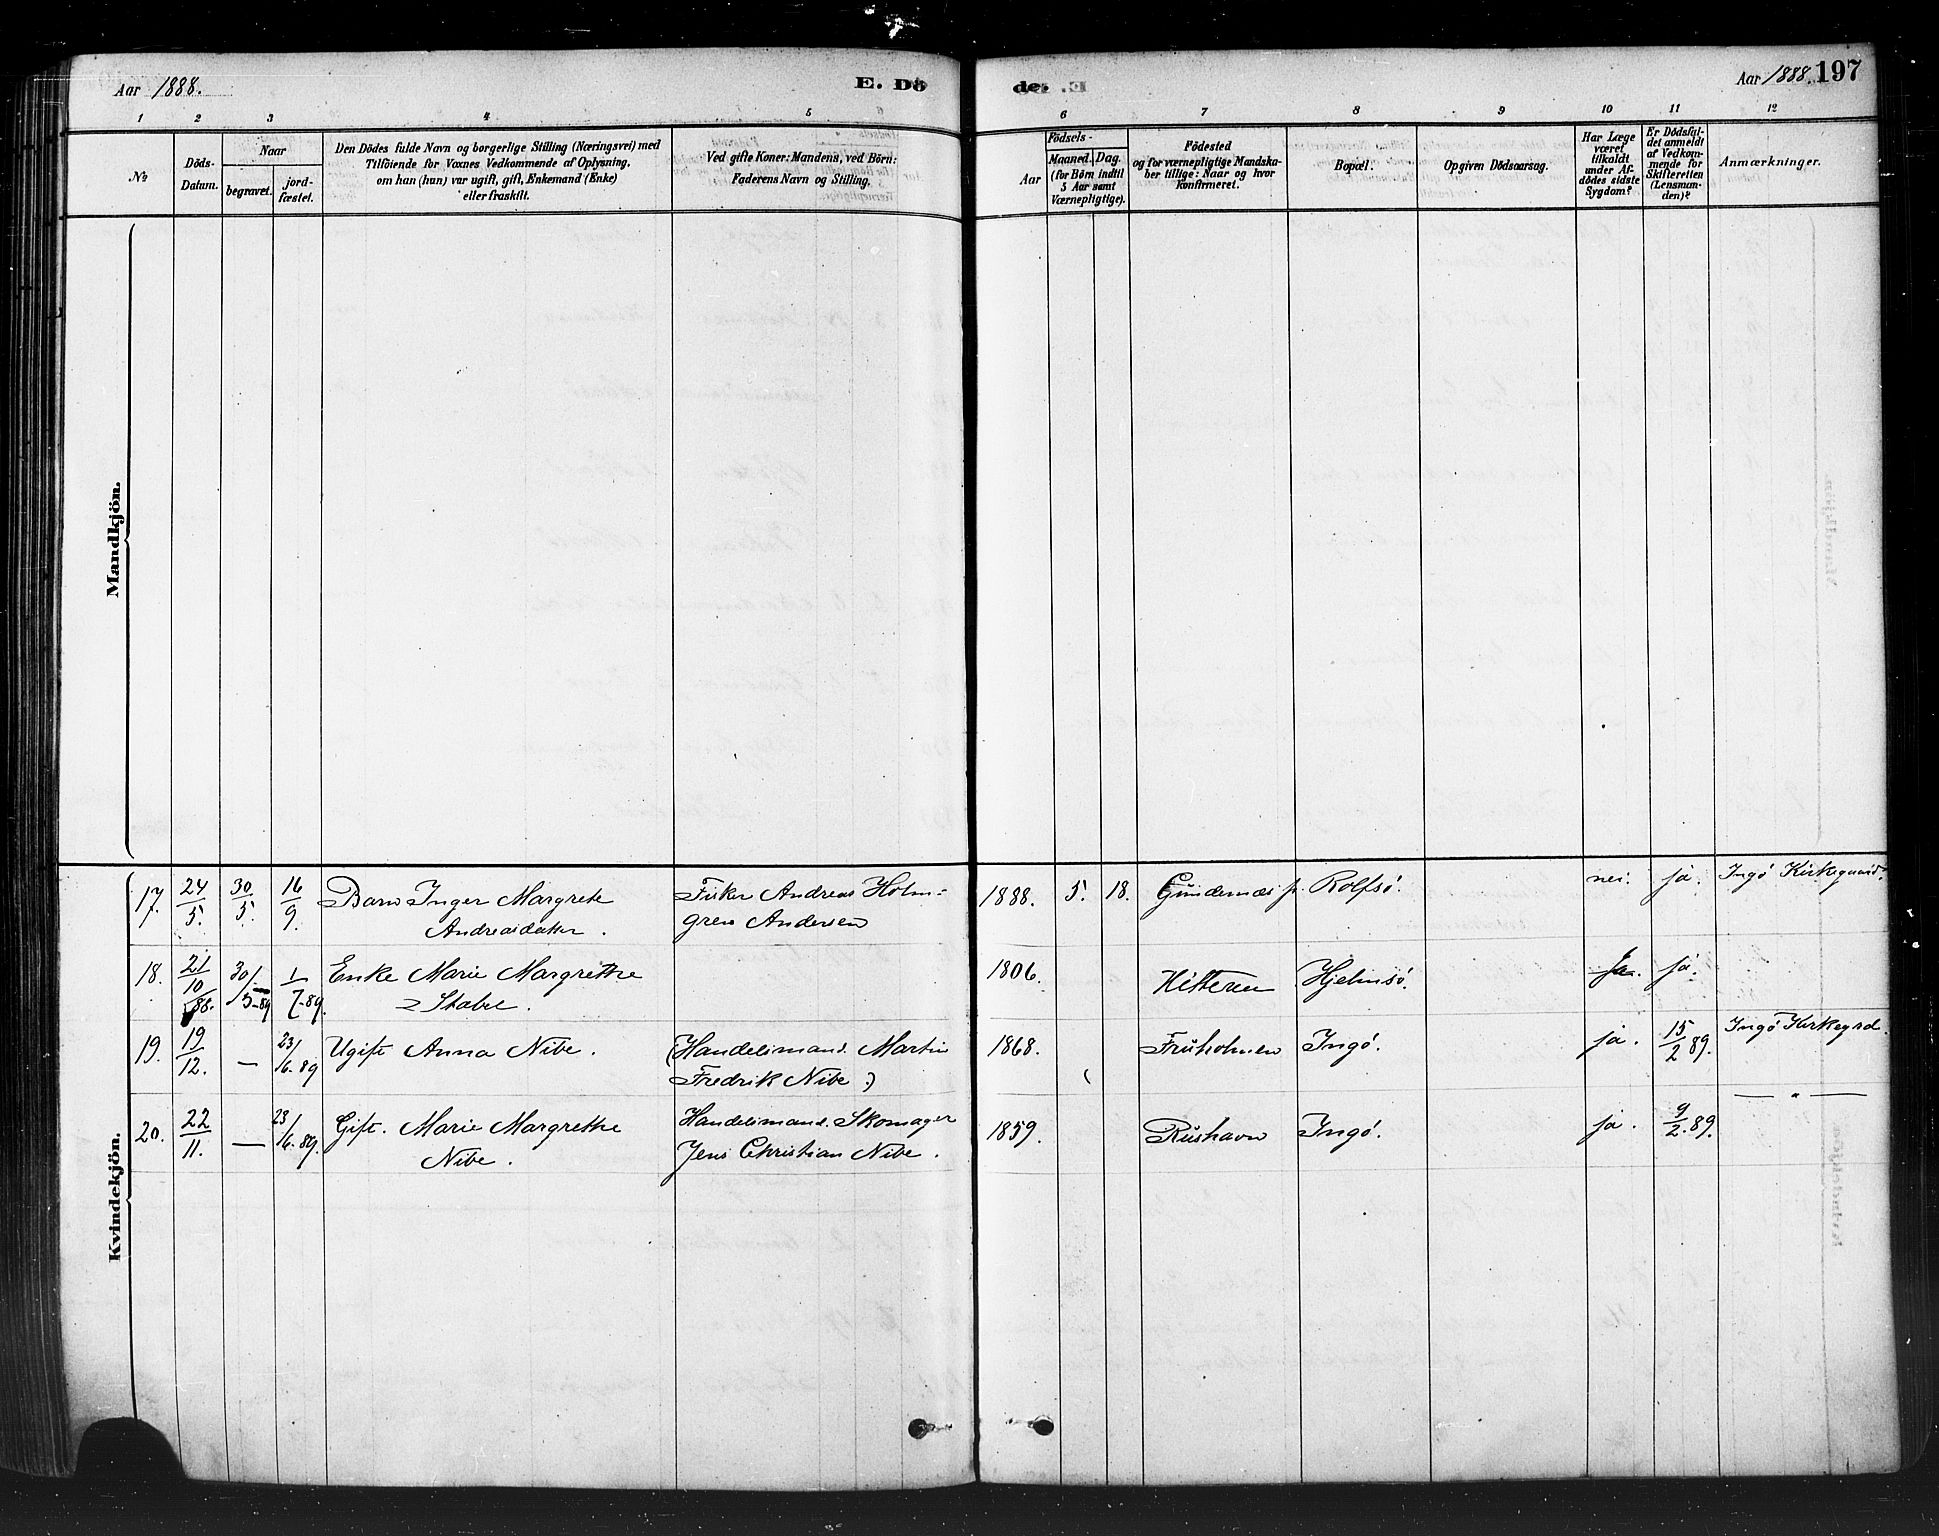 Aar 1888. E. Dö
de. Aar 1888. 197
1 2 3 4 5 6 7 8 9 10 11 12
No
Döds-
Datum.
Naar
begravet. jord-
fæstet.
Den Dödes fulde Navn og borgerlige Stilling (Næringsvei) med
Tilföiende for Voxnes Vedkommende af Oplysning,
om han (hun) var ugift, gift, Enkemand (Enke)
eller fraskilt.
Ved gifte Koner: Mandens, ved Börn:
Faderens Navn og Stilling.
Födsels-
Aar
Maaned. Dag.
(for Börn indtil
5 Aar samt
Værnepligtige).
Födested
og for værnepligtige Mandska-
ber tillige: Naar og hvor
konfirmeret.
Bopæl.
Opgiven Dödsaarsag.
Har Læge
været
tilkaldt
under Af-
dödes sidste
Sygdom?
Er Dödsfal-
det anmeldt
af Vedkom-
mende for
Skifteretten
(Lensman-
den)?
Anmærkninger.
Mandkjön.
Kvindekjön.
17. 24/5. 30/5. 16/9. Barn Inger Margrete Fisker Andreas Holm= 1888. 5. 18. Rolfsö. nei. ja. Ingö Kirkegaard.
Andreasdatter. gren Andersen
18. 21/10 88. 30/5-89 1/7-89. Enke Marie Margrethe 1806. Hitteren Hjelmsö. ja. ja.
Stabel.
19. 19/12. — 23/6-89 Ugift Anna Nibe. (Handelsmand. Martin 1868. Fruholmen Ingö. ja. 15/2 89. Ingö Kirkegrd.
Fredrik Nibe.)
20. 22/11. — 23/6-89. Gift. Marie Margrethe Handelsmand. Skomager 1859. Rushavn Ingö. ja. 9/2 89. — " —
Nibe. Jens Christian Nibe.